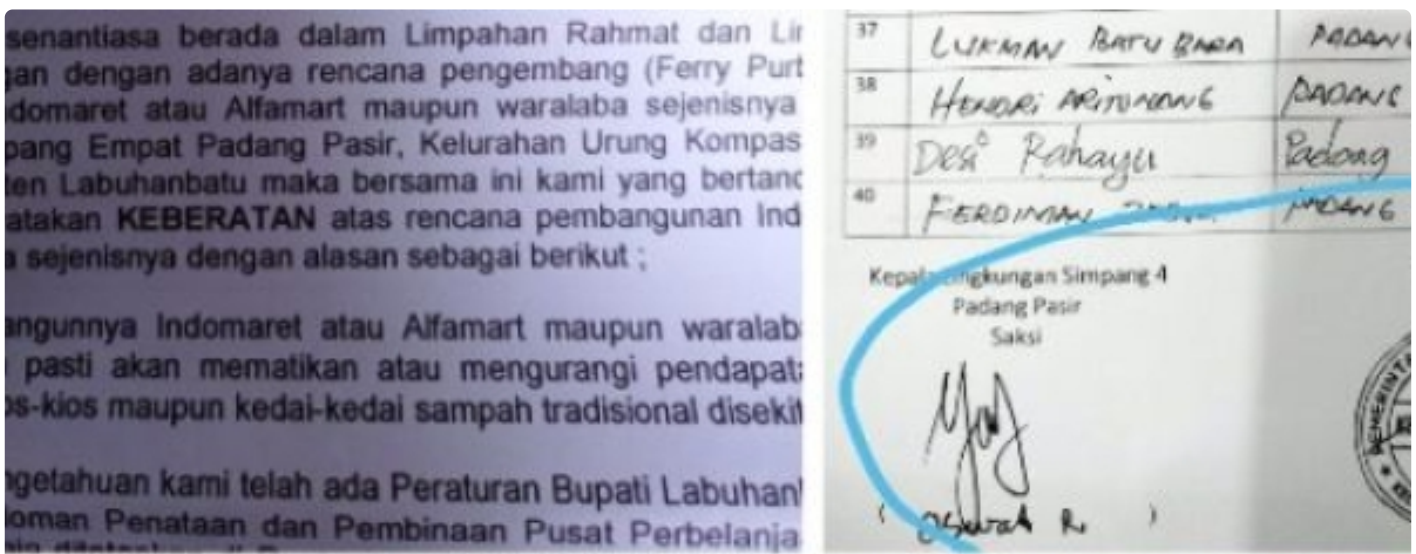 senantiasa berada dalam Limpahan Rahmat dan
dengan adanya rencana pengembang (Ferry
Indomaret atau Alfamart maupun waralaba sejenisnya
Empat Padang Pasir, Kelurahan Urung Kompas
Labuhanbatu maka bersama ini kami yang
KEBERATAN atas rencana pembangunan
sejenisnya dengan alasan sebagai berikut ;
Indomaret atau Alfamart maupun
pasti akan mematikan atau mengurangi
maupun kedai-kedai sampah tradisional
kami telah ada Peraturan Bupati
Penataan dan Pembinaan Pusat
37 LUKMAN BATU BARA PADANG
38 HENDRi ARITONANG PADANG
39 Desi Rahayu Padang
40 FERDINMAN PADANG
Kepala Lingkungan Simpang 4
Padang Pasir
Saksi
( R. )